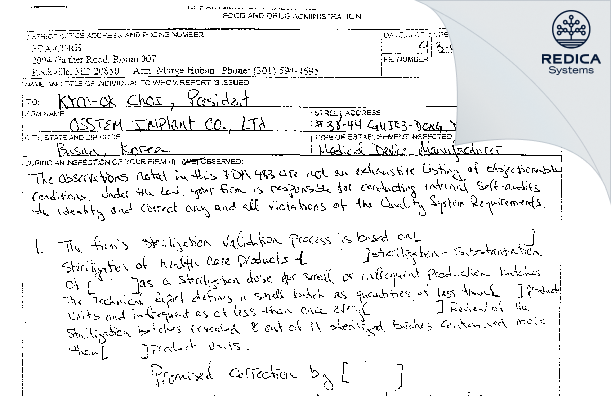 FOOD AND DRUG ADMINISTRATION
DISTRICT OFFICE ADDRESS AND PHONE NUMBER
FDA/CDRH
2094 Gaither Road, Room 007
Rockville, MD 20850 Attn: Phone: (301)
FEI NUMBER
NAME AND TITLE OF INDIVIDUAL TO WHOM REPORT IS ISSUED
TO: Choi, President
FIRM NAME
OSSTEM IMPLANT CO., LTD
STREET ADDRESS
CITY, STATE AND ZIP CODE
Busan, Korea
TYPE OF ESTABLISHMENT INSPECTED
Medical Device Manufacturer
DURING AN INSPECTION OF YOUR FIRM (I) (WE) OBSERVED:
The observations noted in this FDA 483 are not an exhaustive listing of objectionable
conditions. Under the law, your firm is responsible for conducting internal self-audits
to identify and correct any and all violations of the Quality System Requirements.
1. The firm's Sterilization Validation Process is based on [ ]
Sterilization of health care products [ ] sterilization - Substantiation
of [ ] as a sterilization dose for small or infrequent production batches
The technical report defines a small batch as quantities of less than [ ] product
units and infrequent as at less than once every [ ] Review of the
Sterilization batches revealed 8 out of 11 sterilized batches contained more
than [ ] product units.
Promised correction by [ ]
REDICA
Systems